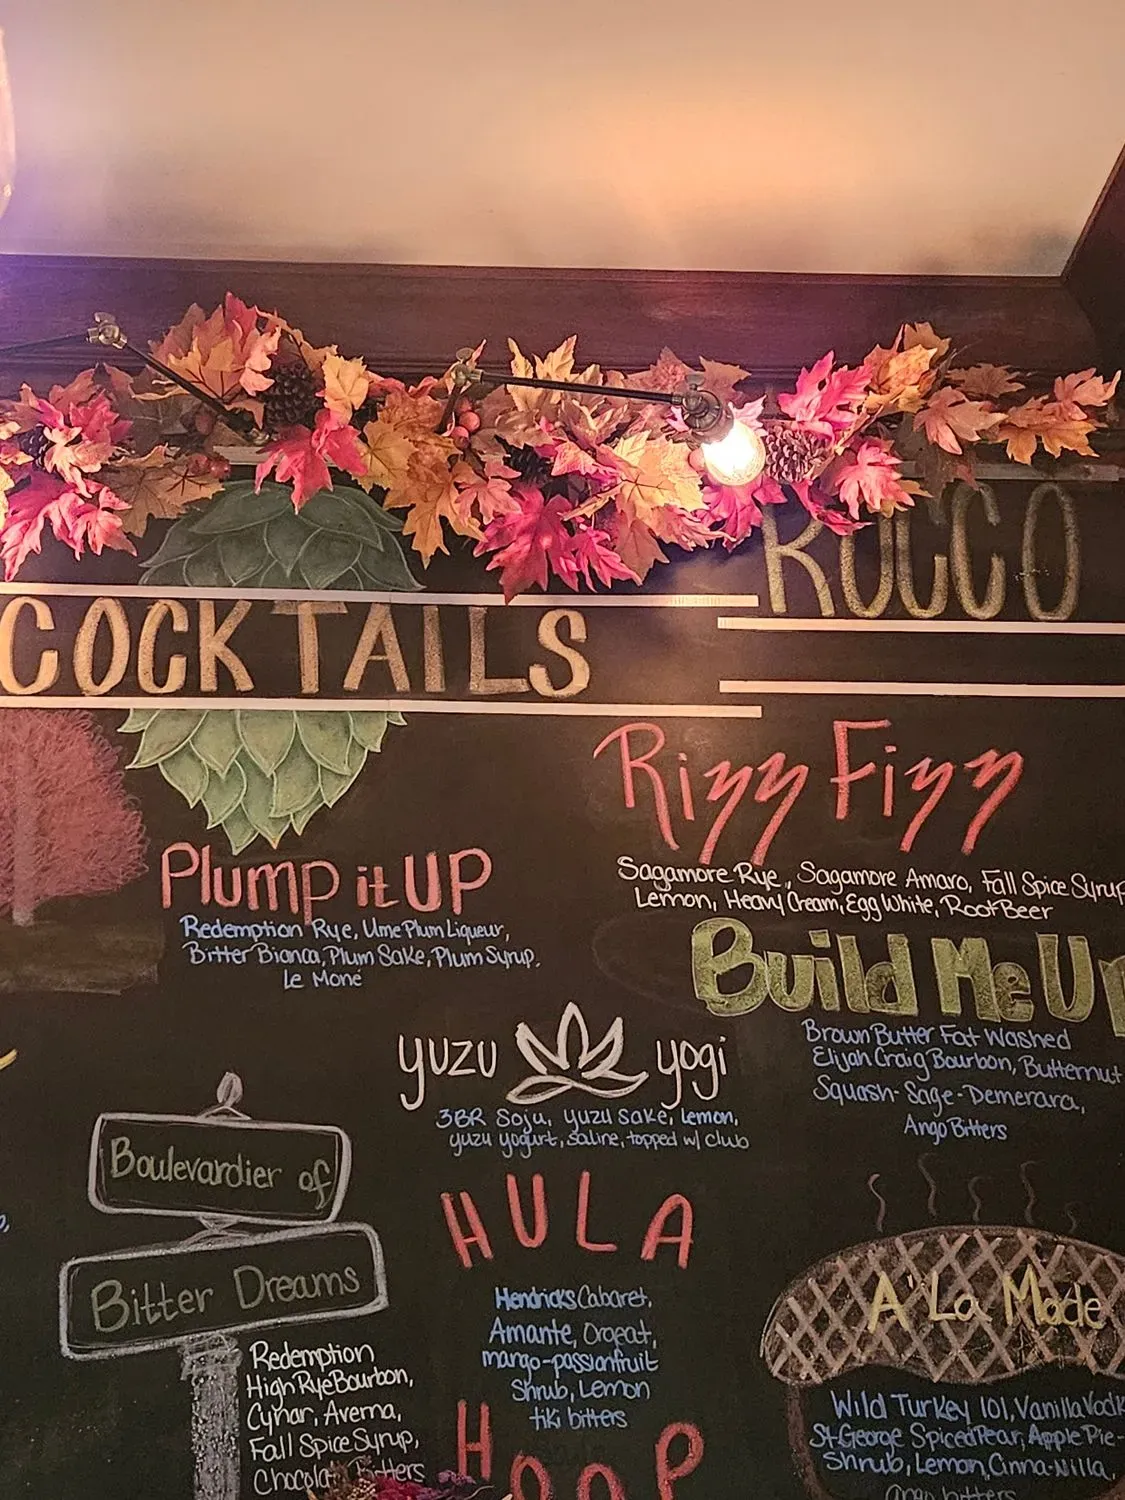 ROCCO
COCKTAILS
Rizz Fizz
Sagamore Rye, Sagamore Amaro, Fall Spice Syrup
Lemon, Heavy Cream, Egg White, Root Beer
Plump it UP
Redemption Rye, Ume Plum Liqueur,
Bitter Bianca, Plum Sake, Plum Syrup.
Le Moné
Build Me Up
Brown Butter Fat Washed
Elijah Craig Bourbon, Butternut
Squash-Sage-Demerara,
Ango Bitters
yuzu yogi
3BR Soju, yuzu sake, lemon,
yuzu yogurt, saline, topped w/ club
Boulevardier of
Bitter Dreams
Redemption
High Rye Bourbon,
Cynar, Averna,
Fall Spice Syrup,
Chocolate Bitters
HULA
Hendricks Cabaret,
Amante, Orgeat,
mango-passionfruit
Shrub, Lemon
tiki bitters
HOOP
A La Mode
Wild Turkey 101, Vanilla Vodk
St. George Spiced Pear, Apple Pie-
Shrub, Lemon, Cinna-Nilla,
Ango bitters